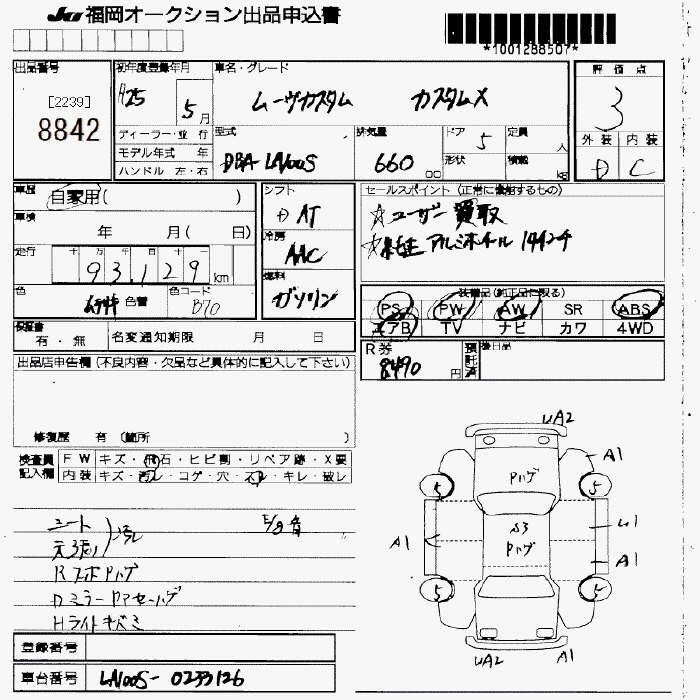 JU 福岡オークション出品申込書
*1001288507*
出品番号
[2239]
8842
初年度登録年月
H25 5月
車名・グレード
ムーヴカスタム カスタムX
ディーラー・並行
モデル年式 年
ハンドル 左・右
型式
DBA-LA100S
排気量
660 cc
ドア 5
形状
定員 人
積載 kg
評価点
3
外装 内装
D C
車歴
自家用( )
車検
年 月( 日)
走行
十 万 千 百 十
93,129 km
色 色替
色コード
B70
シフト
D AT
冷房
AAC
燃料
ガソリン
セールスポイント (正常に機能するもの)
☆ユーザー買取
☆純正アルミホイール 14インチ
装備品(純正品に限る)
PS PW AW SR ABS
エアB TV ナビ カワ 4WD
保証書
有・無
名変通知期限 月 日
R券
8490円
預託済
後日品
出品店申告欄 (不良内容・欠品など具体的に記入して下さい)
修復歴 有 (箇所 )
検査員記入欄
FW キズ・飛石・ヒビ割・リペア跡・X要
内装 キズ・汚レ・コゲ・穴・スレ・キレ・破レ
シート
天張り
汚レ
E/g音
Dミラー
Hライトキズミ
登録番号
車台番号
LA100S-0233126
UA2
A1
Pハゲ
5
5
S3
Pハゲ
U1
A1
A1
5
5
UA2
A1